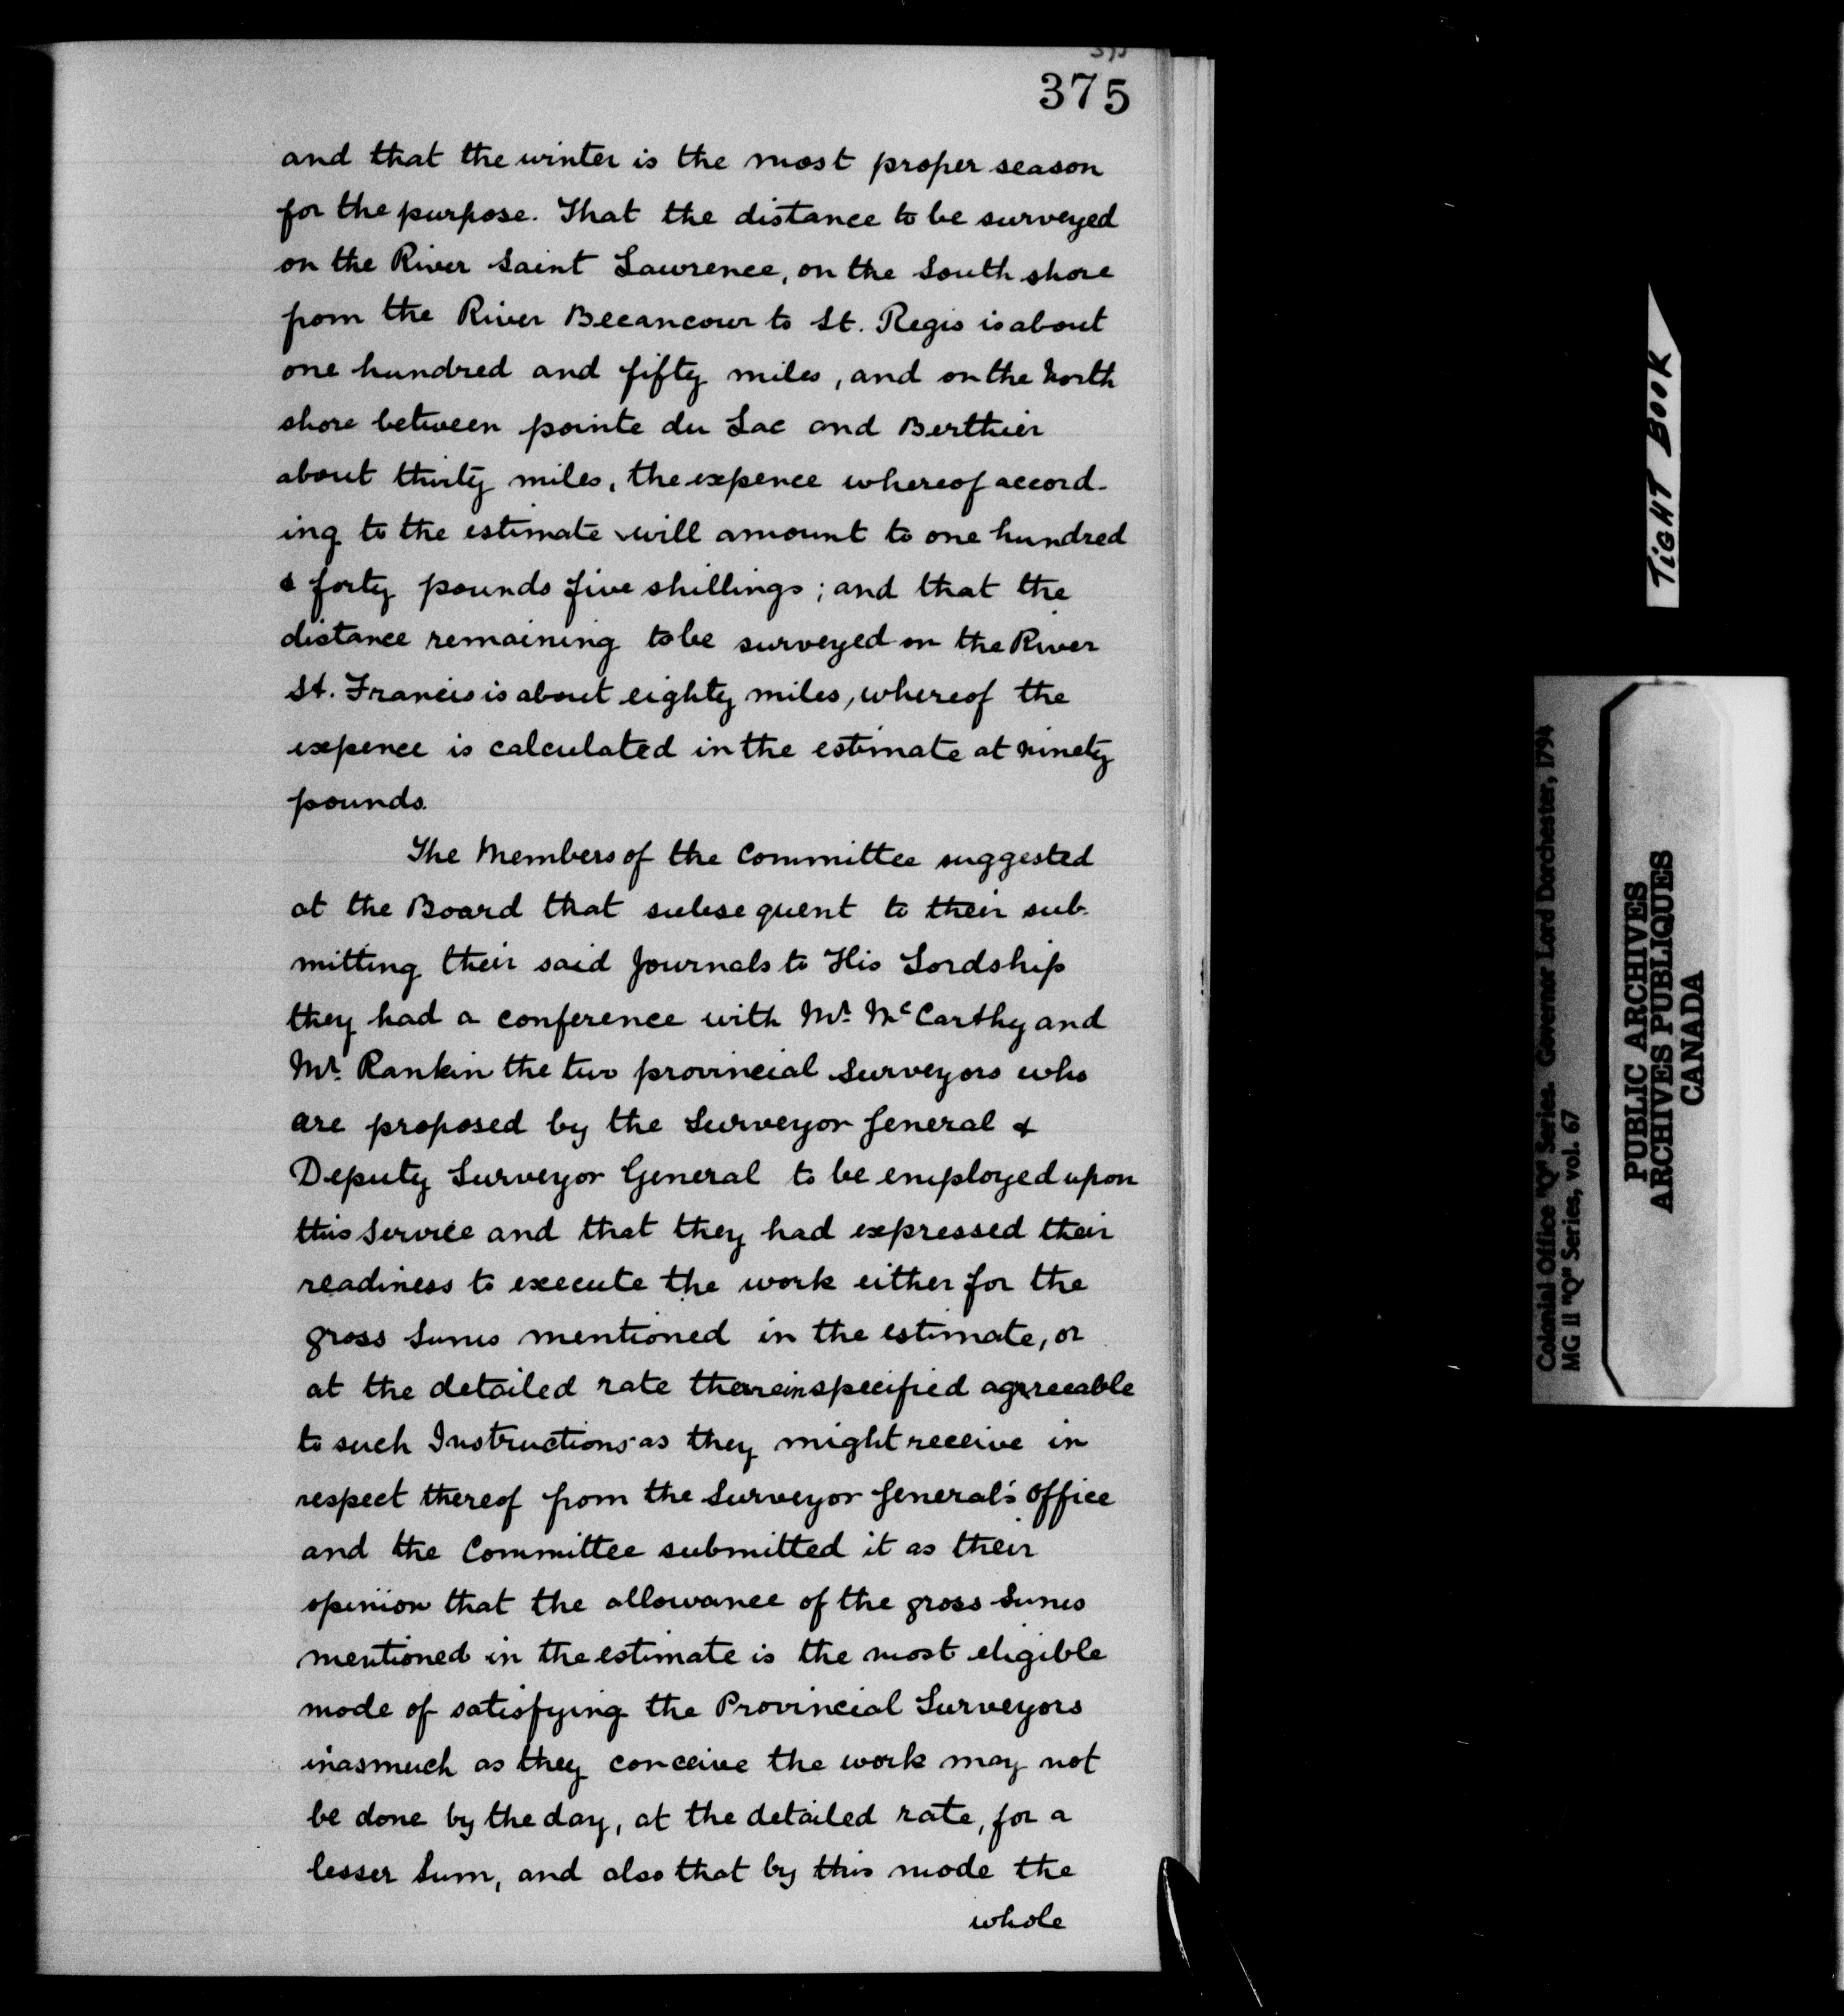 375
and that the winter is the most proper season
for the purpose. That the distance to be surveyed
on the River Saint Lawrence, on the South shore
from the River Becancour to St. Regis is about
one hundred and fifty miles, and on the North
shore between pointe du Lac and Berthier
about thirty miles, the expence whereof accord-
ing to the estimate will amount to one hundred
& forty pounds five shillings; and that the
distance remaining to be surveyed on the River
St. Francis is about eighty miles, whereof the
expence is calculated in the estimate at ninety
pounds.
The Members of the Committee suggested
at the Board that subsequent to their sub-
mitting their said Journals to His Lordship
they had a conference with Mr. McCarthy and
Mr. Rankin the two provincial Surveyors who
are proposed by the Surveyor General &
Deputy Surveyor General to be employed upon
this Service and that they had expressed their
readiness to execute the work either for the
gross Sums mentioned in the estimate, or
at the detailed rate therein specified agreeable
to such Instructions as they might receive in
respect thereof from the Surveyor General's Office
and the Committee submitted it as their
opinion that the allowance of the gross Sums
mentioned in the estimate is the most eligible
mode of satisfying the Provincial Surveyors
inasmuch as they conceive the work may not
be done by the day, at the detailed rate, for a
lesser Sum, and also that by this mode the
whole
TIGHT BOOK
Colonial Office "Q" Series. Governor Lord Dorchester, 1794
MG 11 "Q" Series, vol. 67
PUBLIC ARCHIVES
ARCHIVES PUBLIQUES
CANADA